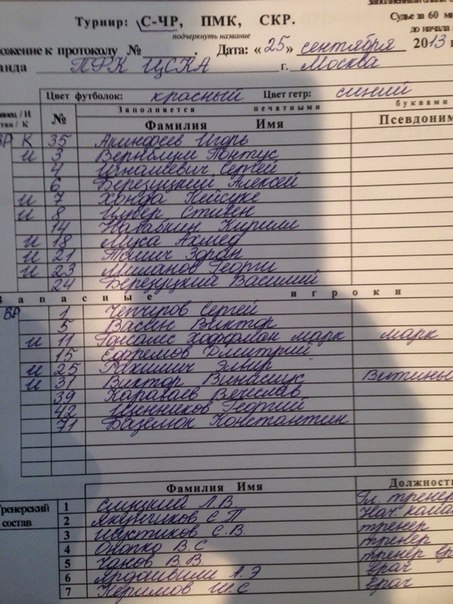 Турнир: С-ЧР, ПМК, СКР.
подчеркнуть название
Судье за 60 ми
до начала
ложение к протоколу № Дата: «25» сентября 2013
анда ПФК ЦСКА г. Москва
Цвет футболок: красный Цвет гетр: синий
Заполняется печатными буквами
№ Фамилия Имя Псевдоним
ВР К 35 Акинфеев Игорь
И 3 Вернблум Понтус
4 Игнашевич Сергей
6 Березуцкий Алексей
И 7 Хонда Кейсуке
И 8 Цубер Стивен
14 Набабкин Кирилл
И 18 Муса Ахмед
И 21 Тошич Зоран
И 23 Миланов Георги
24 Березуцкий Василий
Запасные игроки
ВР 1 Чепчугов Сергей
5 Васин Виктор
И 11 Гонсалес марк марк
15 Ефремов Дмитрий
И 25 Рахимич Элвир
И 31 Виктор Винисиус
39 Караваев Вячеслав
42 Щенников Георгий
71 Базелюк Константин
Фамилия Имя Должность
Тренерский состав
1 Слуцкий Л.В. Гл. тренер
2 Якунчиков С.П
3 Овчинников С.В. тренер
4 Онопко В.С тренер
5 Чанов В.В тренер
6 Ярдошвили А.Э врач
7 Керимов Ш.С врач